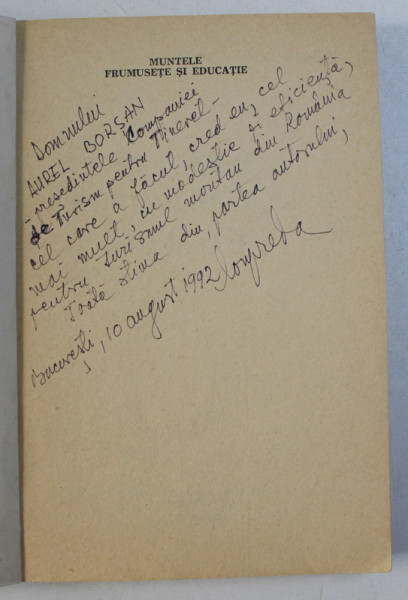 MUNTELE
FRUMUSEȚE ȘI EDUCAȚIE
Domnului
AUREL BORȘAN
- președintele Companiei
de Turism pentru Tineret -
cel care a făcut, cred eu, cel
mai mult, în modestie și eficiență,
pentru turismul montan din România
Toată stima din partea autorului,
București, 10 august 1992